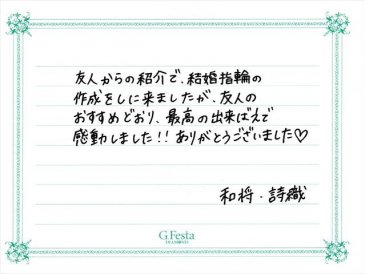 友人からの紹介で、結婚指輪の
作成をしに来ましたが、友人の
おすすめどおり、最高の出来ばえで
感動しました!!ありがとうございました♡
和将・詩織
G.Festa